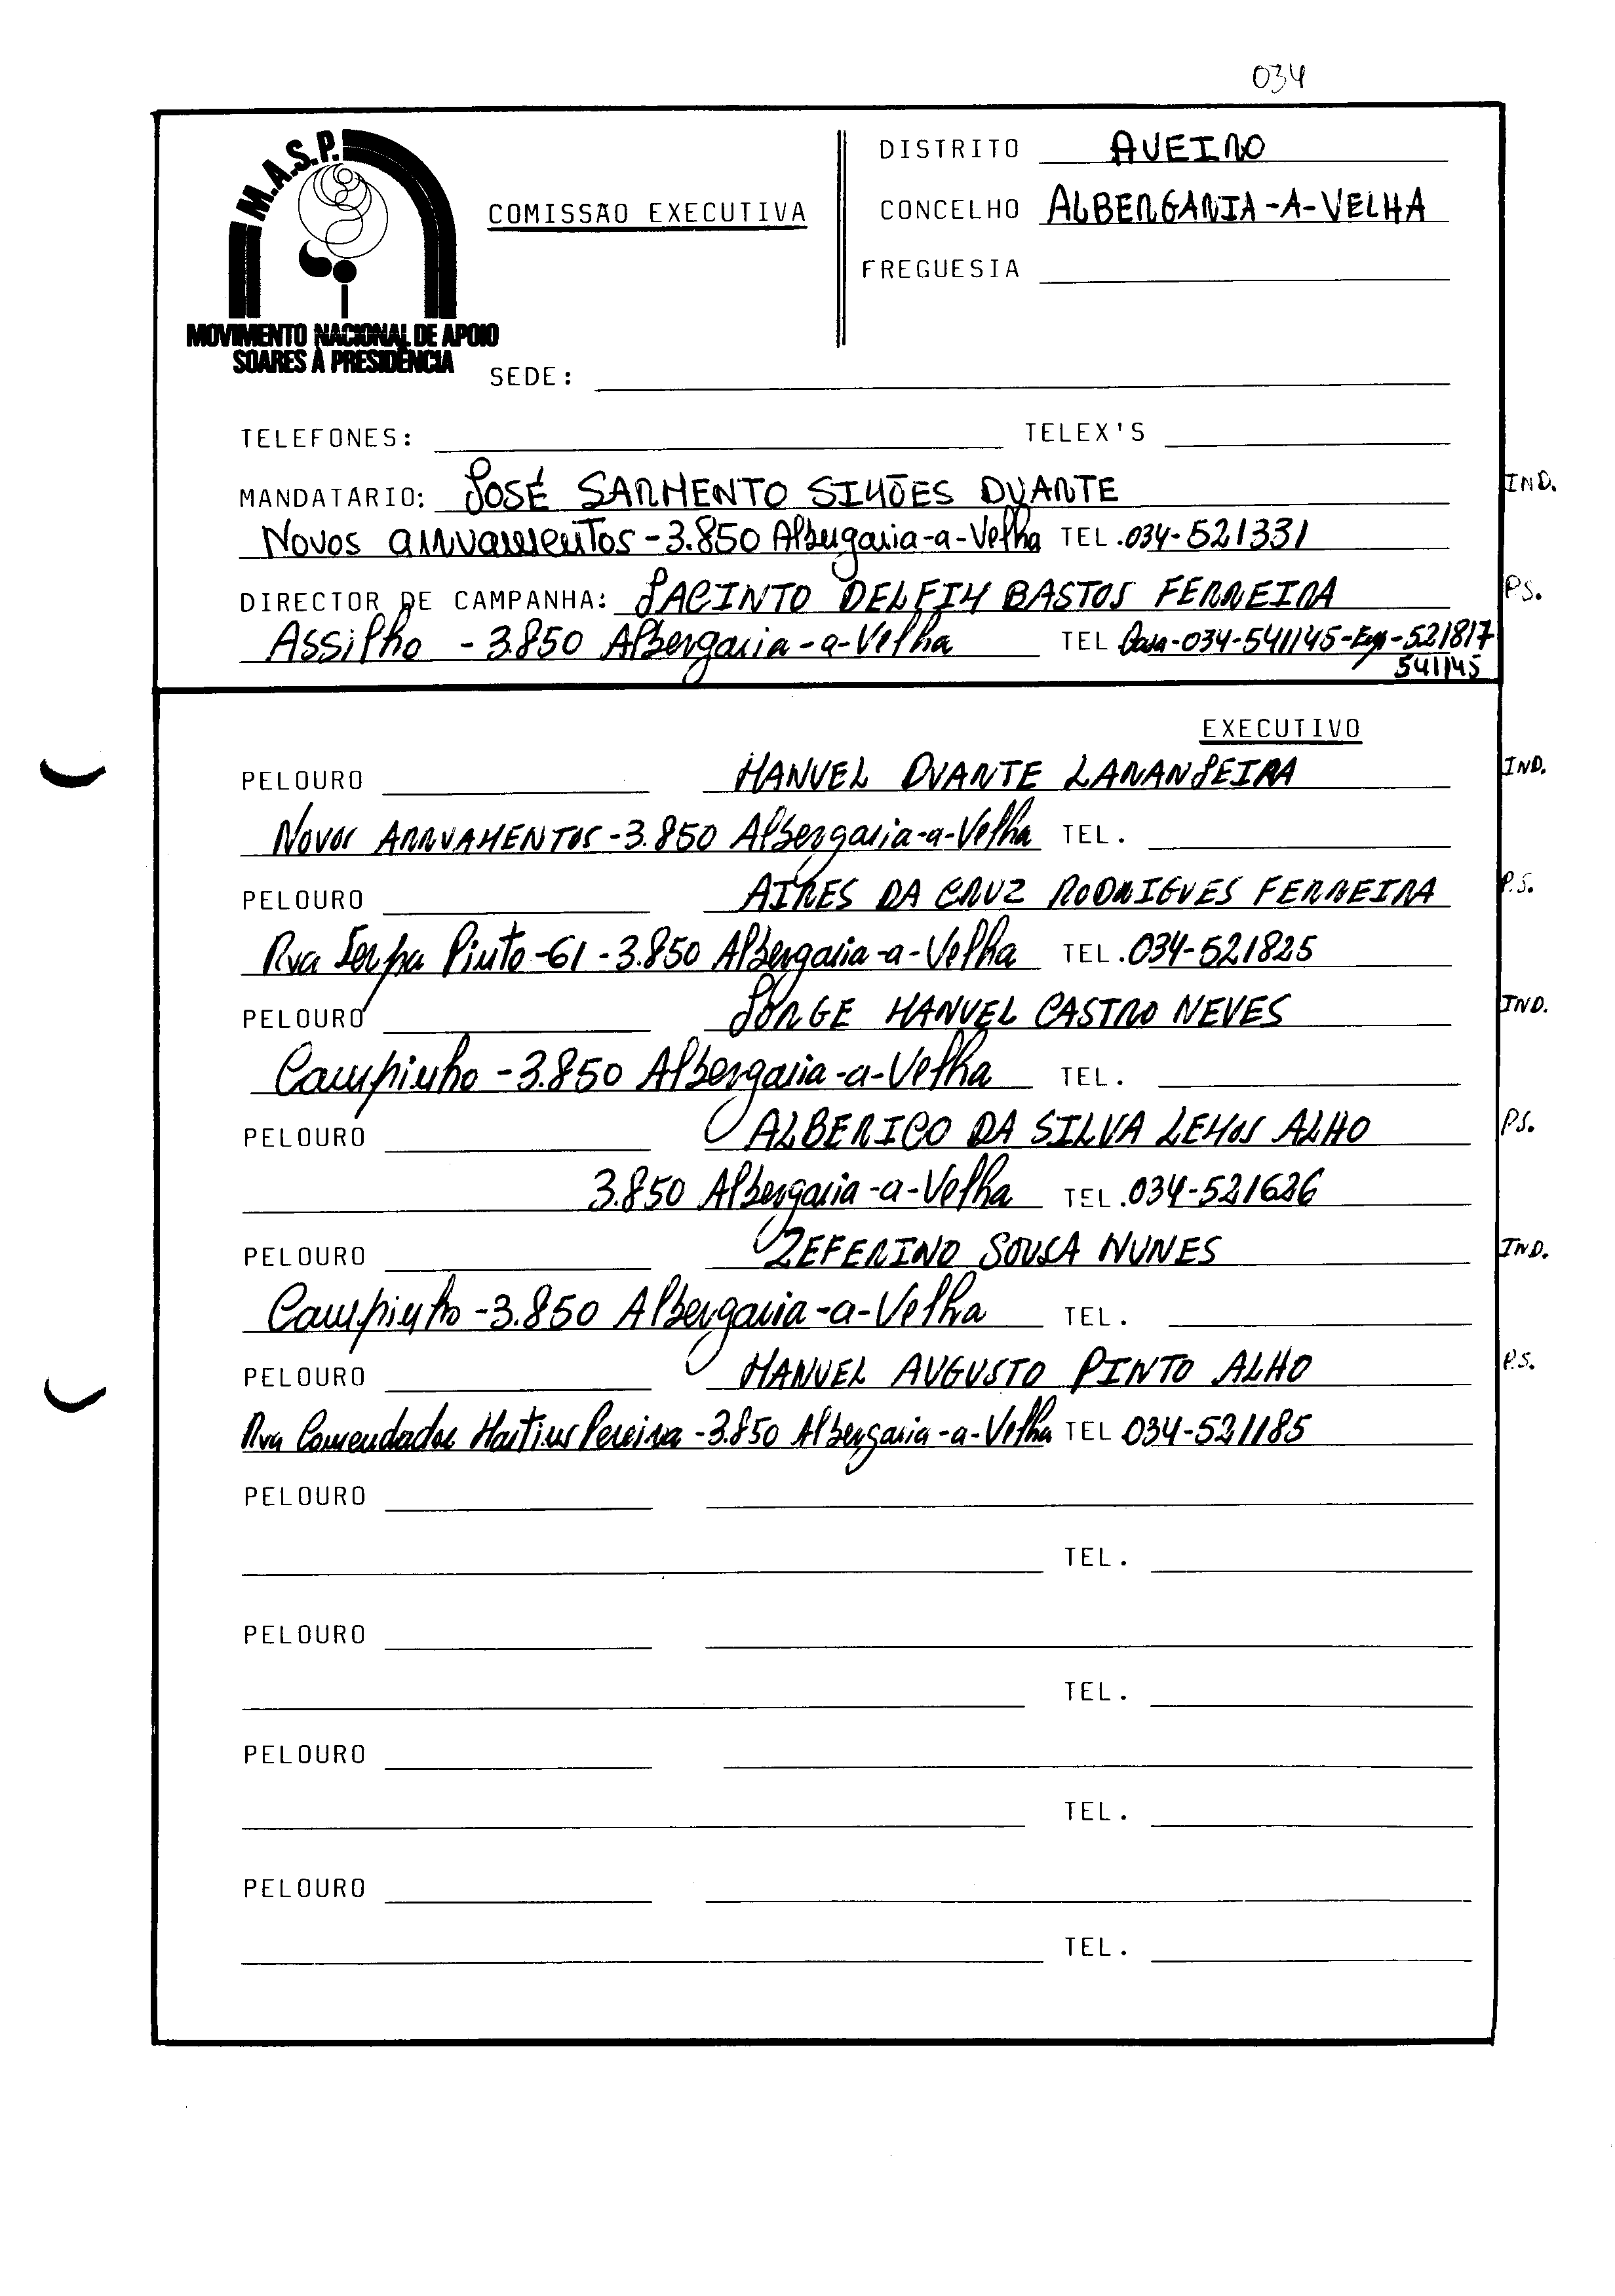 034
M.A.S.P.
MOVIMENTO NACIONAL DE APOIO
SOARES À PRESIDÊNCIA
COMISSÃO EXECUTIVA
DISTRITO AVEIRO
CONCELHO ALBERGARIA-A-VELHA
FREGUESIA
SEDE:
TELEFONES: TELEX'S
MANDATÁRIO: JOSÉ SARMENTO SIMÕES DUARTE IND.
Novos arruamentos - 3.850 Albergaria-a-Velha TEL. 034-521331
DIRECTOR DE CAMPANHA: JACINTO DELFIM BASTOS FERREIRA P.S.
Assilho - 3.850 Albergaria-a-Velha TEL Casa-034-541145-Emp-521817
541145
EXECUTIVO
PELOURO MANUEL DUARTE LARANJEIRA IND.
Novos ARRUAMENTOS - 3.850 Albergaria-a-Velha TEL.
PELOURO AIRES DA CRUZ RODRIGUES FERREIRA P.S.
Rua Serpa Pinto-61-3.850 Albergaria-a-Velha TEL. 034-521825
PELOURO JORGE MANUEL CASTRO NEVES IND.
Campinho - 3.850 Albergaria-a-Velha TEL.
PELOURO ALBERICO DA SILVA LEMOS ALHO P.S.
3.850 Albergaria-a-Velha TEL. 034-521626
PELOURO ZEFERINO SOUSA NUNES IND.
Campinho - 3.850 Albergaria-a-Velha TEL.
PELOURO MANUEL AUGUSTO PINTO ALHO P.S.
Rua Comendador Martins Pereira - 3.850 Albergaria-a-Velha TEL 034-521185
PELOURO
TEL.
PELOURO
TEL.
PELOURO
TEL.
PELOURO
TEL.